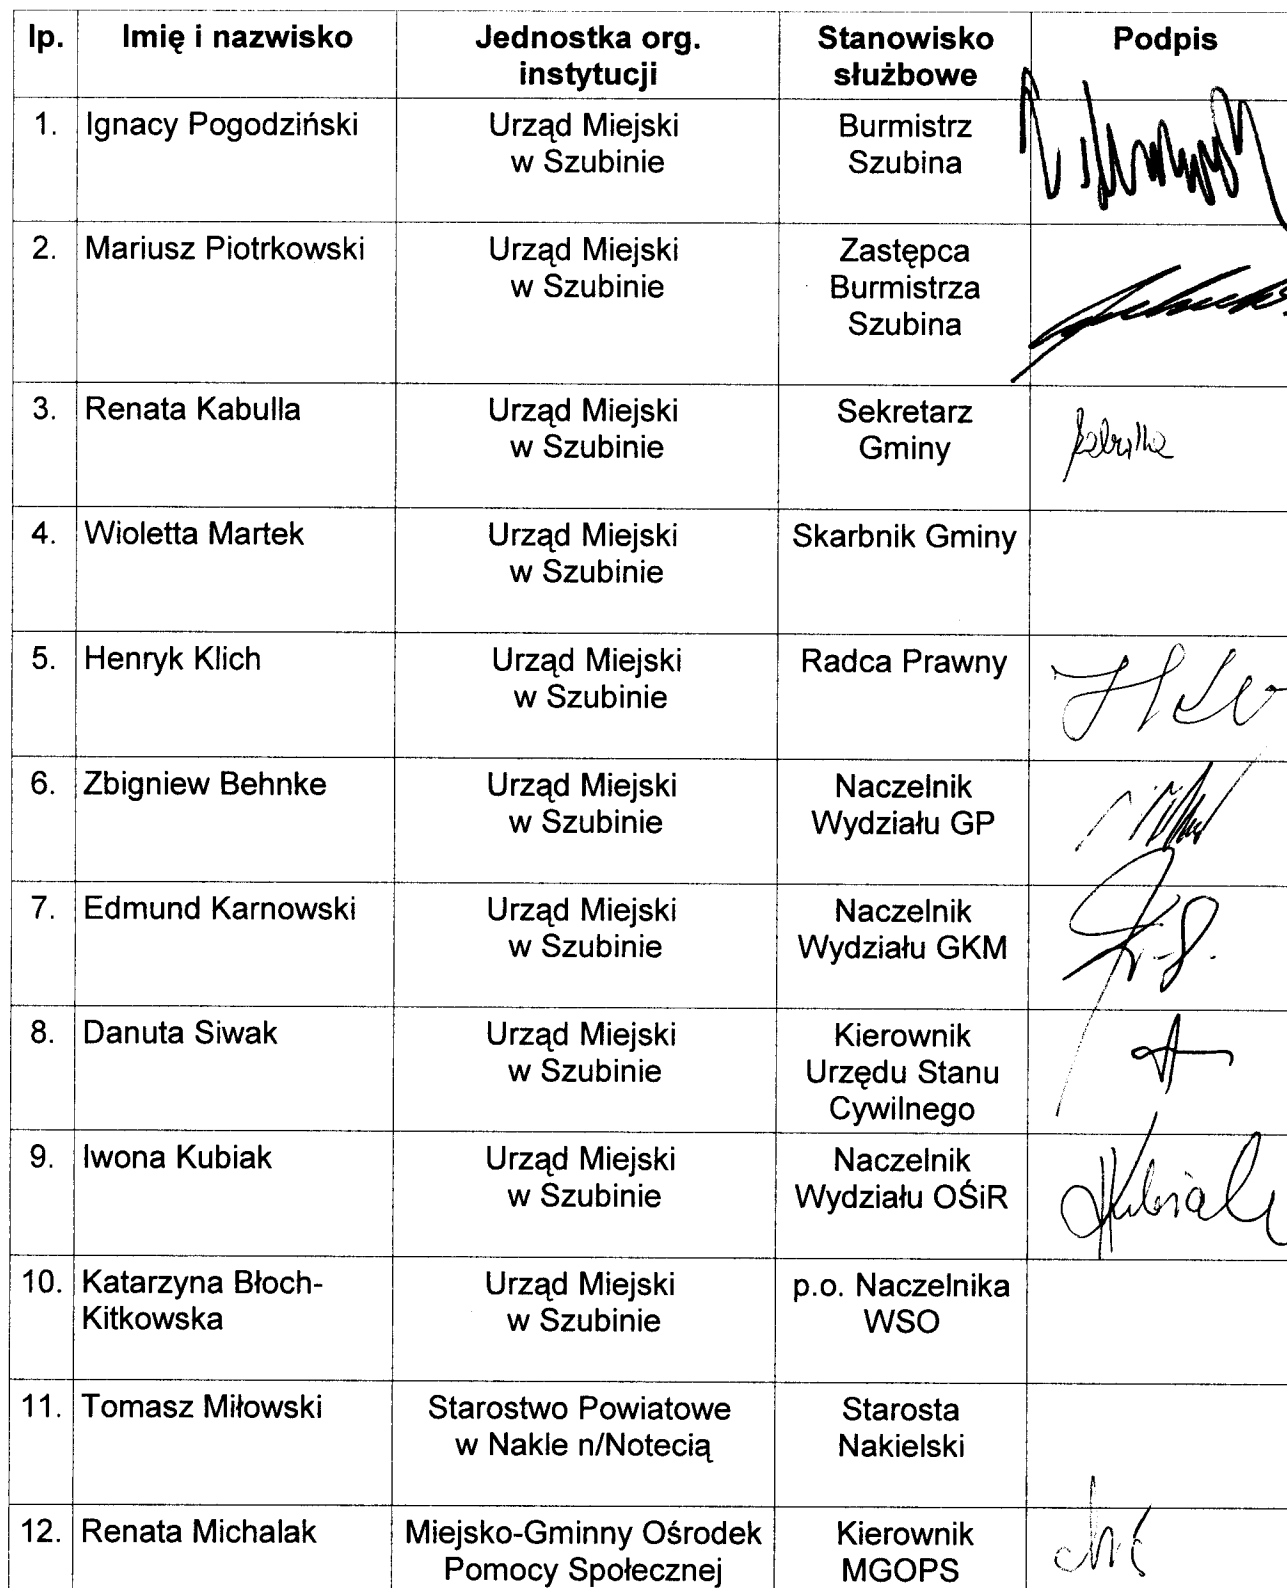 lp. Imię i nazwisko Jednostka org. instytucji Stanowisko służbowe Podpis
1. Ignacy Pogodziński Urząd Miejski w Szubinie Burmistrz Szubina
2. Mariusz Piotrkowski Urząd Miejski w Szubinie Zastępca Burmistrza Szubina
3. Renata Kabulla Urząd Miejski w Szubinie Sekretarz Gminy Kabulla
4. Wioletta Martek Urząd Miejski w Szubinie Skarbnik Gminy
5. Henryk Klich Urząd Miejski w Szubinie Radca Prawny
6. Zbigniew Behnke Urząd Miejski w Szubinie Naczelnik Wydziału GP
7. Edmund Karnowski Urząd Miejski w Szubinie Naczelnik Wydziału GKM
8. Danuta Siwak Urząd Miejski w Szubinie Kierownik Urzędu Stanu Cywilnego
9. Iwona Kubiak Urząd Miejski w Szubinie Naczelnik Wydziału OŚiR Kubiak
10. Katarzyna Błoch-Kitkowska Urząd Miejski w Szubinie p.o. Naczelnika WSO
11. Tomasz Miłowski Starostwo Powiatowe w Nakle n/Notecią Starosta Nakielski
12. Renata Michalak Miejsko-Gminny Ośrodek Pomocy Społecznej Kierownik MGOPS